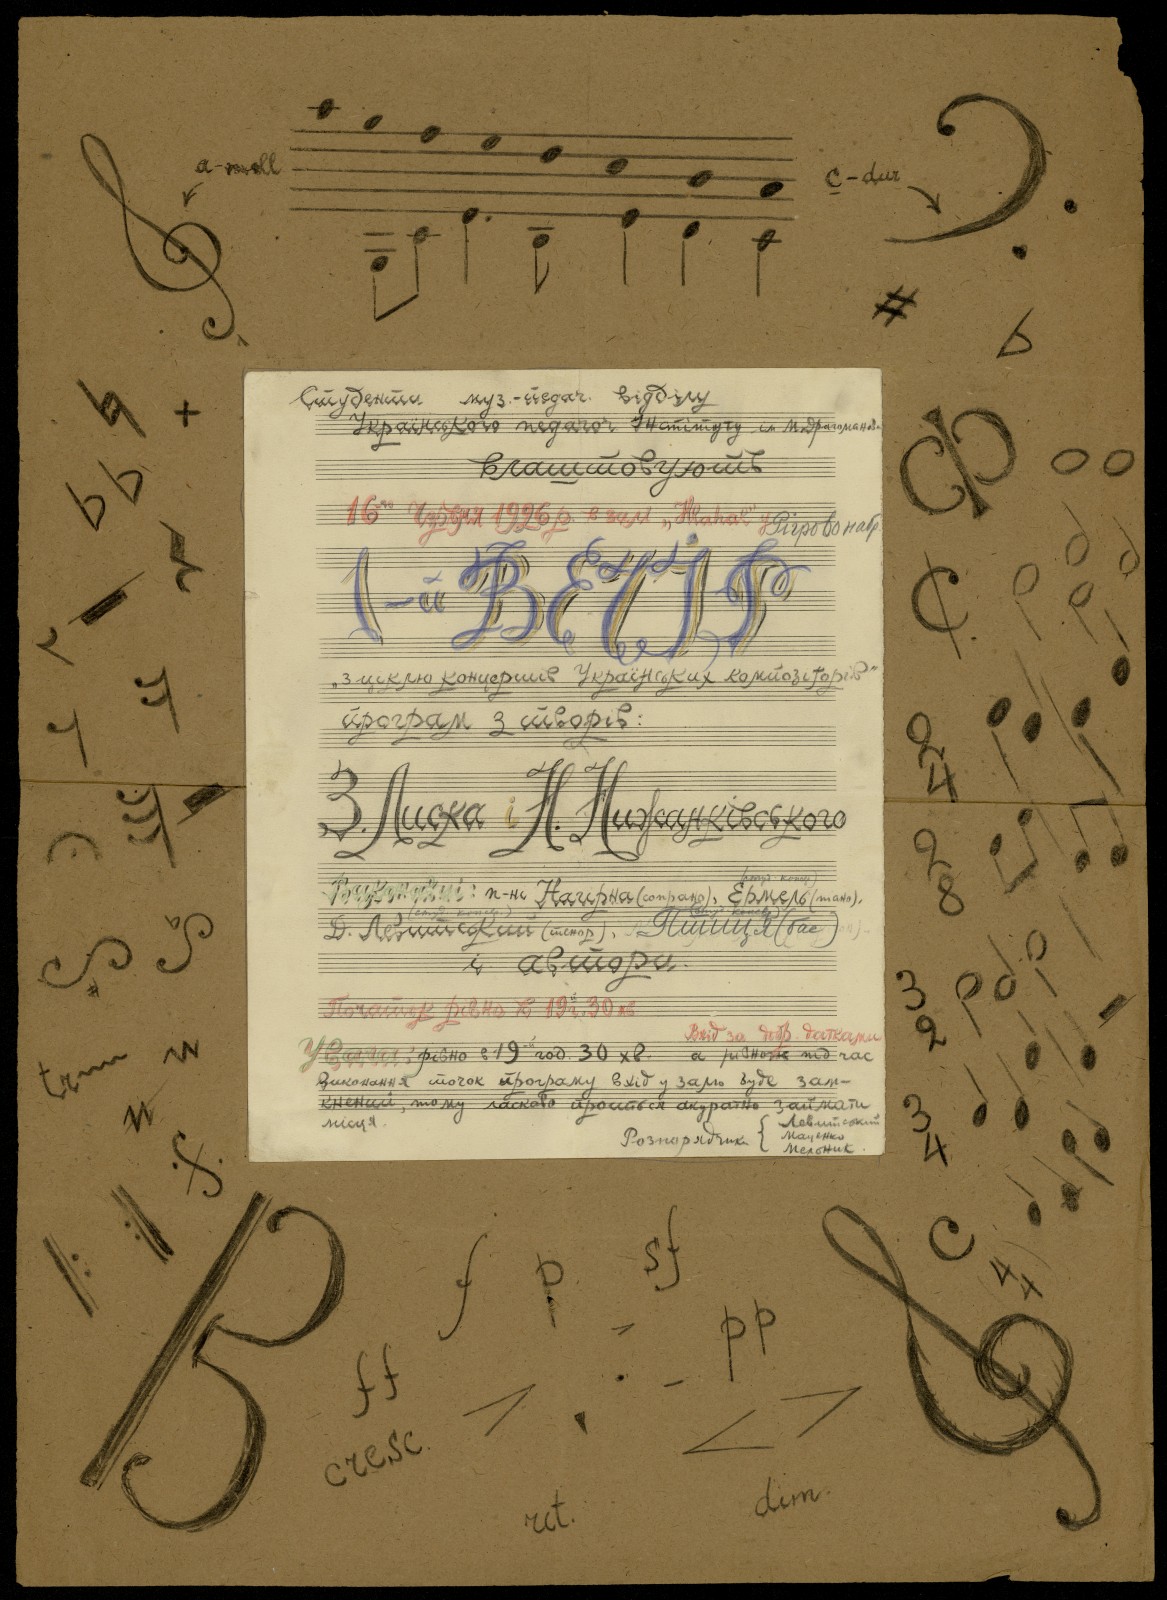 a-moll
c-dur
Студенти муз.-педаг. відділу
Українського педагог. Інституту ім М. Драгоманова
влаштовують
16го Червня 1926 р. в залі „Hlahol" у
I-й ВЕЧІР
„з циклю концертів Українських композіторів"
програм з творів:
З. Лиска і Н. Нижанківського
Виконавці: п-ні Нагірна (сопрано), Ермель (піано),
Д. Левитський (тенор), Пшиця (бас)
і автори.
Початок рівно в 19г. 30 хв
Вхід за добр. датками
Увага: рівно в 19ій год. 30 хв. а рівнож під час
виконання точок програму вхід у залю буде зам-
кнений, тому ласкаво проситься акуратно займати
місця.
Розпорядчики { Левитський
Маценко
Мельник.
2
4
2
8
3
2
3
4
C
4
4
tr
f p sf
pp
ff
cresc.
rit.
dim.